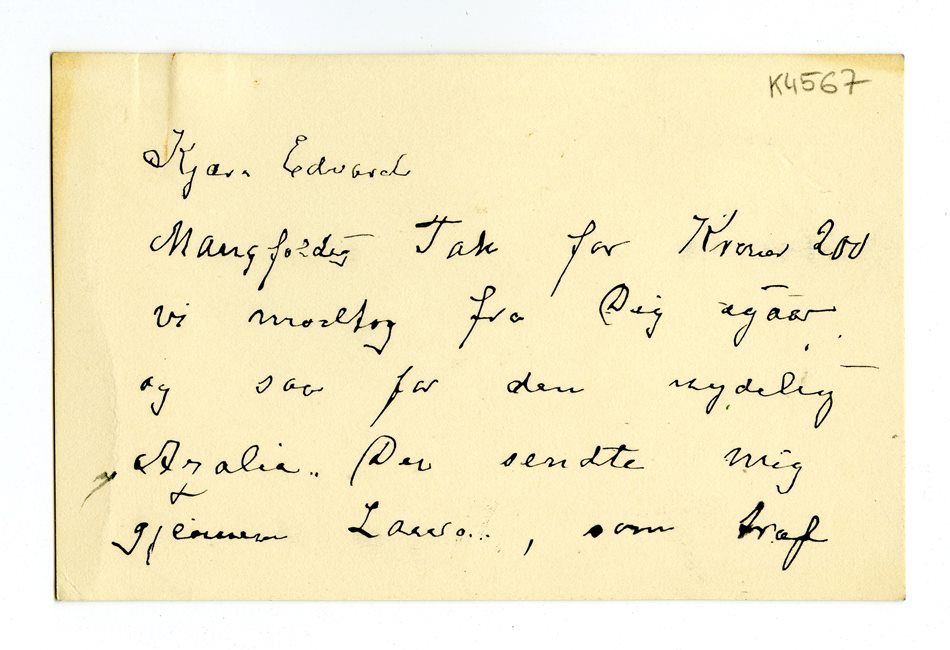 K4567
Kjære Edvard
Mangfoldig Tak for Kroner 200
vi modtog fra Dig igaar
og saa for den nydelig
Azalia. Du sendte mig
gjennem Laura.., som traf